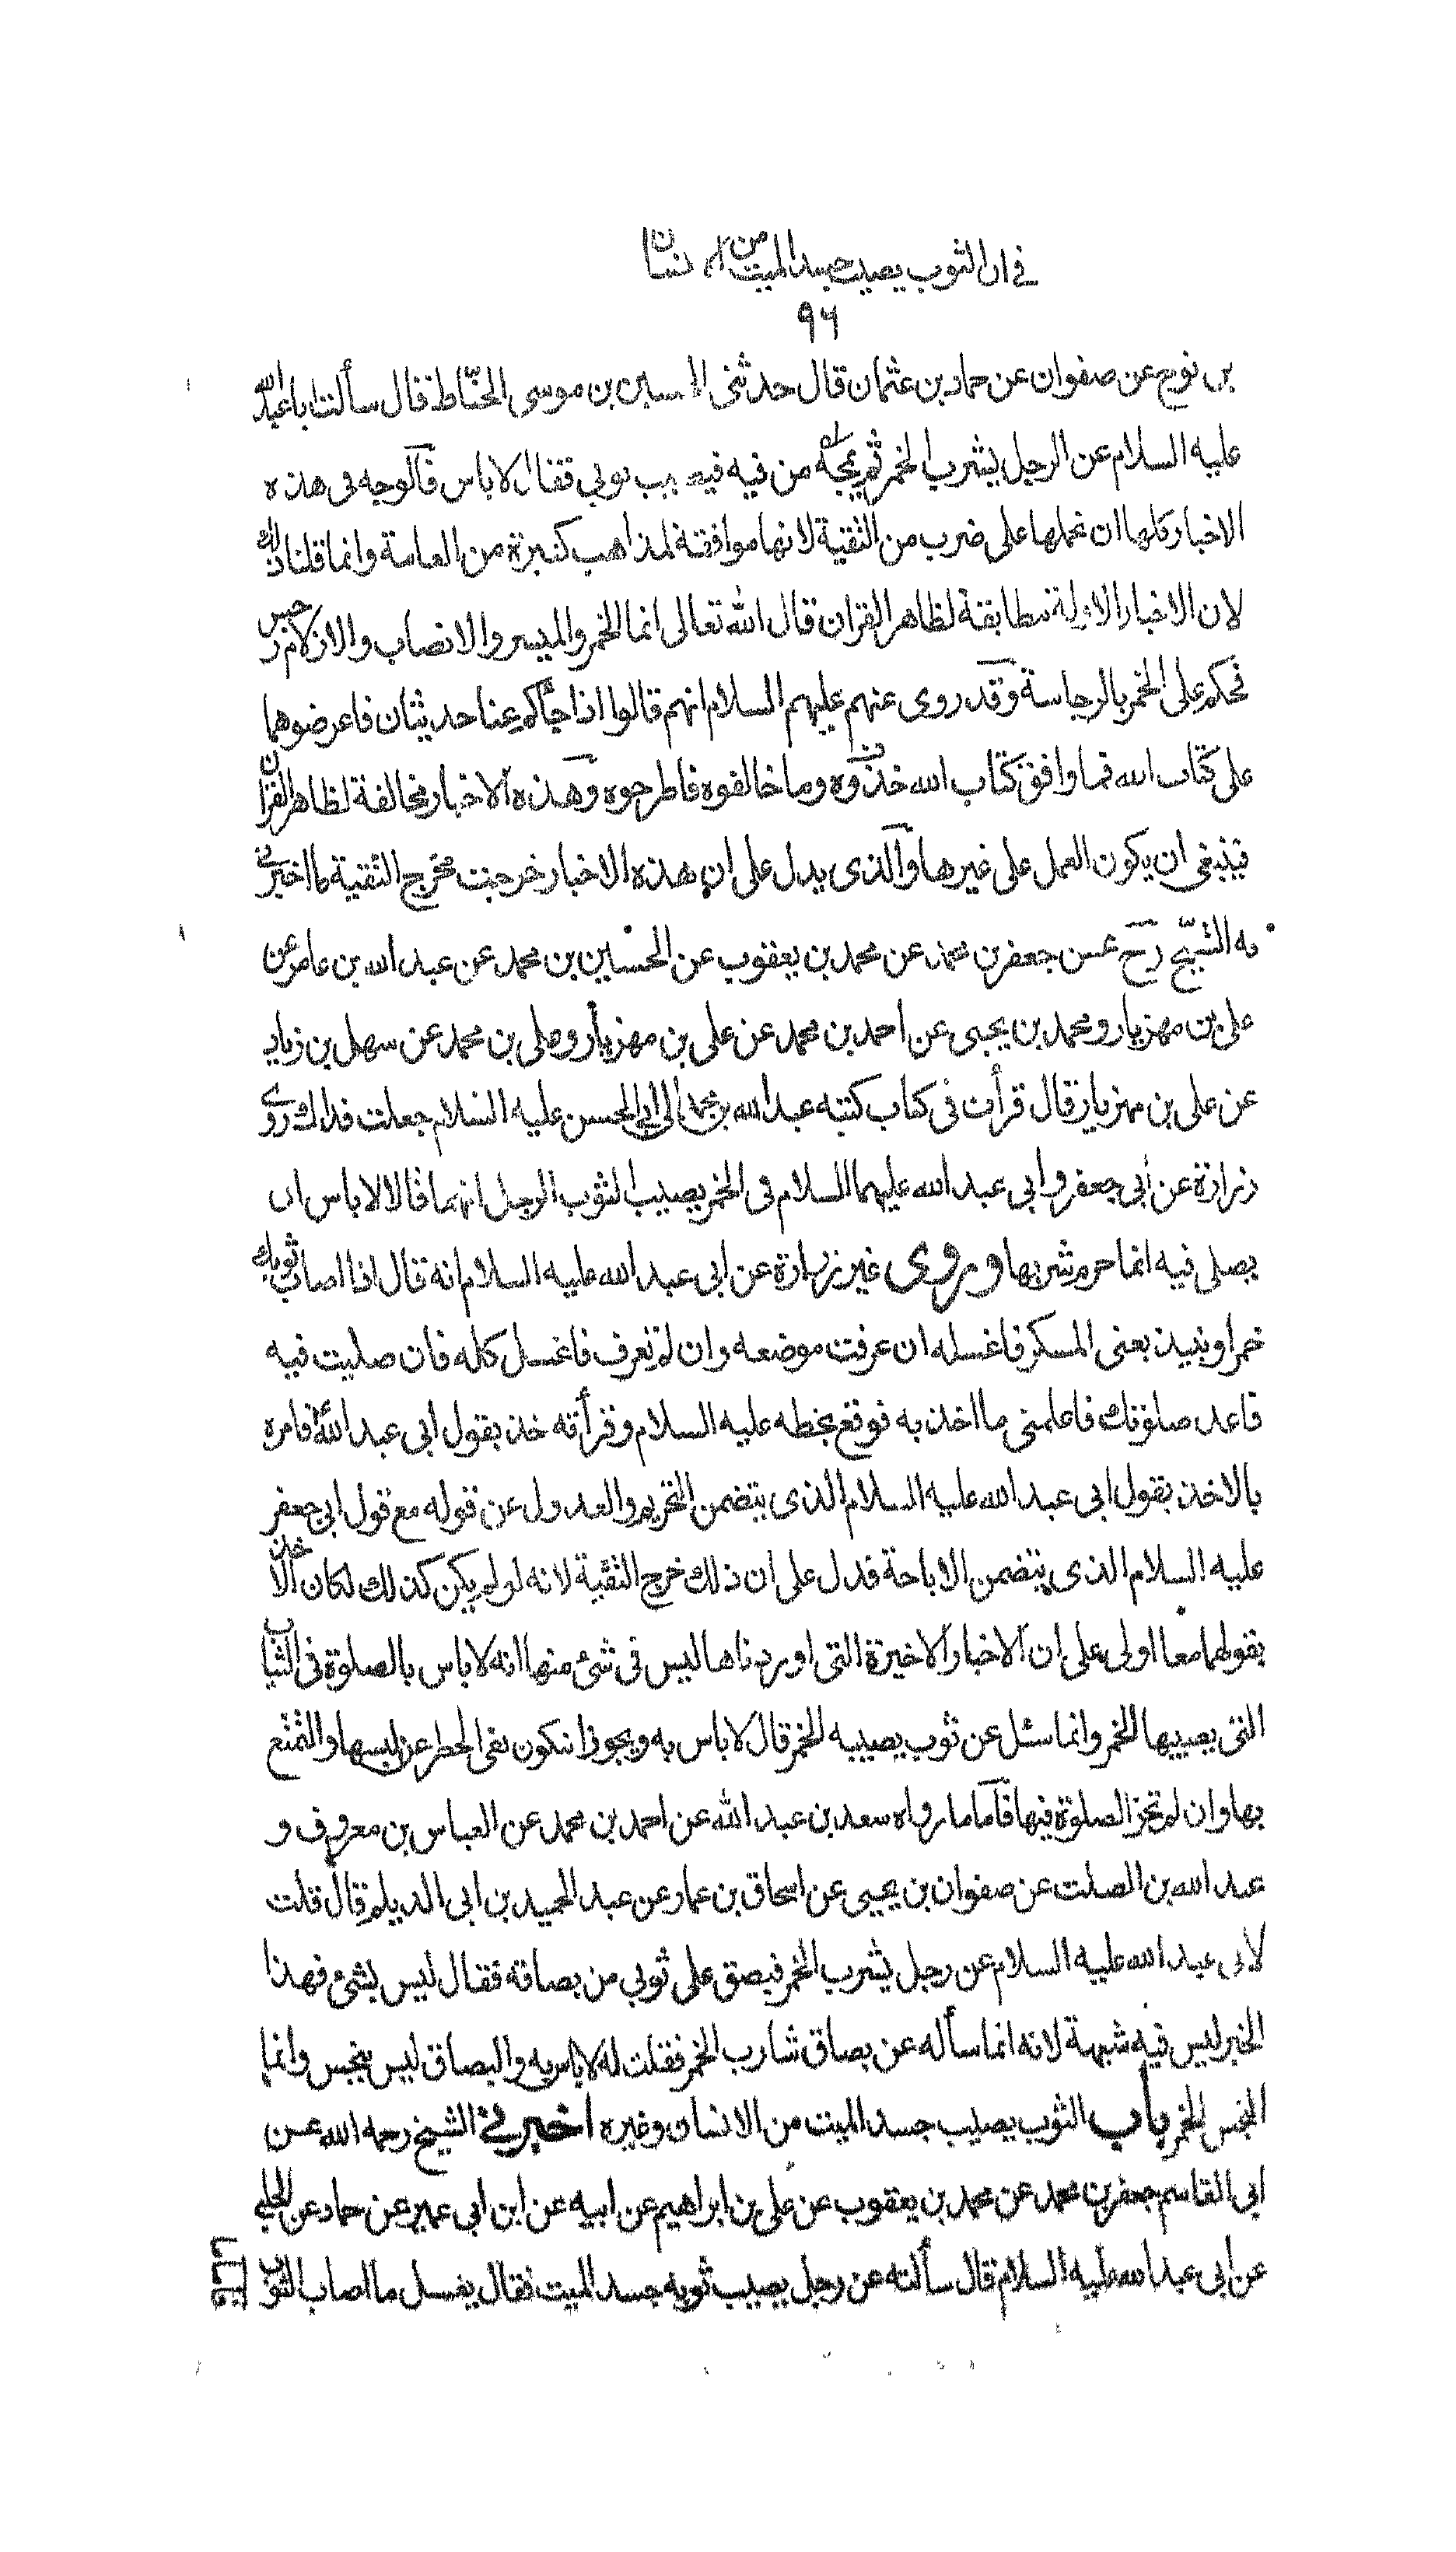 في ان الثوب يصيب جسد الميت من الانسان
٩٦
بن نوح عن صفوان عن حماد بن عثمان قال حدثنى الحسين بن موسى الحنّاط قال سألت ابا عبد الله
عليه السلام عن الرجل يشرب الخمر ثم يمجّه من فيه فيصيب ثوبي فقال لا باس فالوجه فى هذه
الاخبار كلها ان نحملها على ضرب من التقية لانها موافقة لمذاهب كثيرة من العامة وانما قلنا ذلك
لان الاخبار الاولة مطابقة لظاهر القران قال الله تعالى انما الخمر والميسر والانصاب والازلام رجس
فحكم على الخمر بالرجاسة وقد روى عنهم عليهم السلام انهم قالوا اذا جاكم عنا حديثان فاعرضوهما
على كتاب الله فما وافق كتاب الله خذوه وما خالفوه فاطرحوه وهذه الاخبار مخالفة لظاهر القران
فينبغى ان يكون العمل على غيرها والذى يدل على ان هذه الاخبار خرجت مخرج التقية ما اخبرني
به الشيخ رح عن جعفر بن محمد عن محمد بن يعقوب عن الحسين بن محمد عن عبد الله بن عامر عن
على بن مهزيار ومحمد بن يحيى عن احمد بن محمد عن على بن مهزيار وعلى بن محمد عن سهل بن زياد
عن على بن مهزيار قال قرأت فى كتاب كتبه عبد الله بن محمد الى ابى الحسن عليه السلام جعلت فداك روى
زرارة عن أبى جعفر وابى عبد الله عليهما السلام فى الخمر يصيب الثوب الرجل انهما قالا لا باس ان
يصلى فيه انما حرم شربها وروى غير زرارة عن ابى عبد الله عليه السلام انه قال اذا اصاب ثوبك
خمر او نبيذ يعنى المسكر فاغسله ان عرفت موضعه وان لم تعرف فاغسل كله فان صليت فيه
فاعد صلوتك فاعلمنى ما اخذ به فوقع بخطه عليه السلام وقرأته خذ بقول ابى عبد الله ع فامره
بالاخذ بقول ابى عبد الله عليه السلام الذى يتضمن التحريم والعدول عن قوله مع قول ابى جعفر
عليه السلام الذى يتضمن الاباحة فدل على ان ذلك خرج التقية لانه لو لم يكن كذلك لكان الاخذ
بقولهما معا اولى على ان الاخبار الاخيرة التى اوردناها ليس فى شئ منها انه لا باس بالصلوة فى الثياب
التى يصيبها الخمر وانما سئل عن ثوب يصيبه الخمر قال لا باس به ويجوز ان تكون نفى الحظر عن لبسها والتمتع
بها وان لم تجز الصلوة فيها فأما ما رواه سعد بن عبد الله عن احمد بن محمد عن العباس بن معروف و
عبد الله بن الصلت عن صفوان بن يحيى عن اسحاق بن عمار عن عبد الحميد بن ابى الديلم قال قلت
لابى عبد الله عليه السلام عن رجل يشرب الخمر فيبصق على ثوبي من بصاقه فقال ليس بشئ فهذا
الخبر ليس فيه شبهة لانه انما سأله عن بصاق شارب الخمر فقلت له لا باس به والبصاق ليس بنجس وانما
النجس الخمر باب الثوب يصيب جسد الميت من الانسان وغيره اخبرني الشيخ رحمه الله عن
ابى القاسم جعفر بن محمد عن محمد بن يعقوب عن على بن ابراهيم عن ابيه عن ابن ابى عمير عن حماد عن الحلبى
عن ابى عبد الله عليه السلام قال سألته عن رجل يصيب ثوبه جسد الميت فقال يغسل ما اصاب الثوب